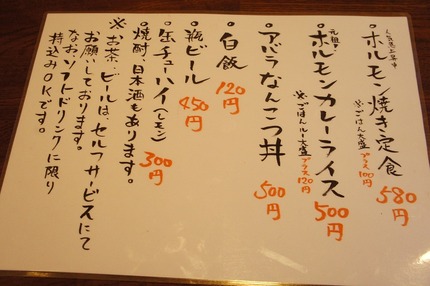 人気急上昇中
・ホルモン焼き定食 580円
※ごはん大盛 プラス100円
元祖!
・ホルモンカレーライス 500円
※ごはんルー大盛 プラス120円
・アバラなんこつ丼 500円
・白飯 120円
・瓶ビール 450円
・缶チューハイ(レモン) 300円
・焼酎、日本酒もあります。
※お茶、ビールは、セルフサービスにて
お願いしております。
なお、ソフトドリンクに限り
持込みOKです。